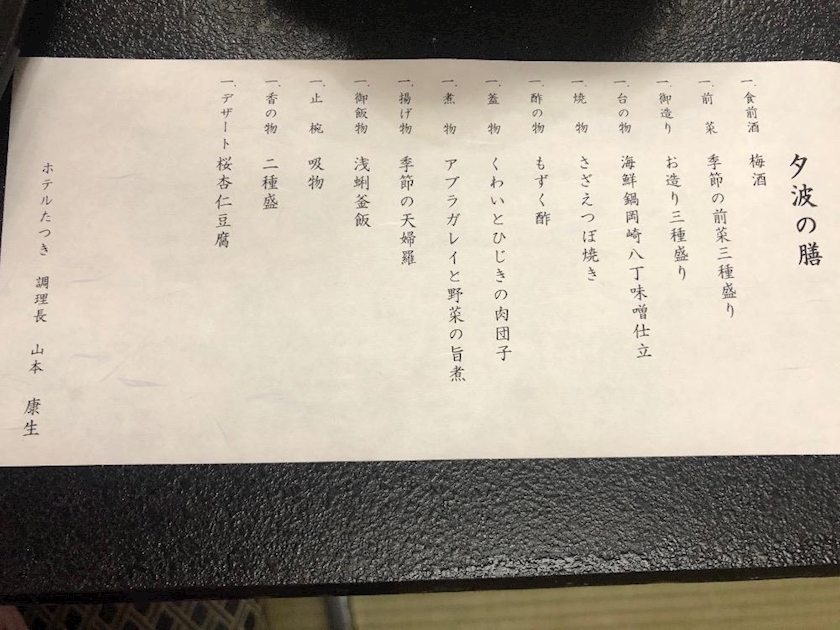 夕波の膳
一、食前酒 梅酒
一、前菜 季節の前菜三種盛り
一、御造り お造り三種盛り
一、台の物 海鮮鍋岡崎八丁味噌仕立
一、焼物 さざえつぼ焼き
一、酢の物 もずく酢
一、蓋物 くわいとひじきの肉団子
一、煮物 アブラガレイと野菜の旨煮
一、揚げ物 季節の天婦羅
一、御飯物 浅蜊釜飯
一、止椀 吸物
一、香の物 二種盛
一、デザート 桜杏仁豆腐
ホテルたつき 調理長 山本 康生